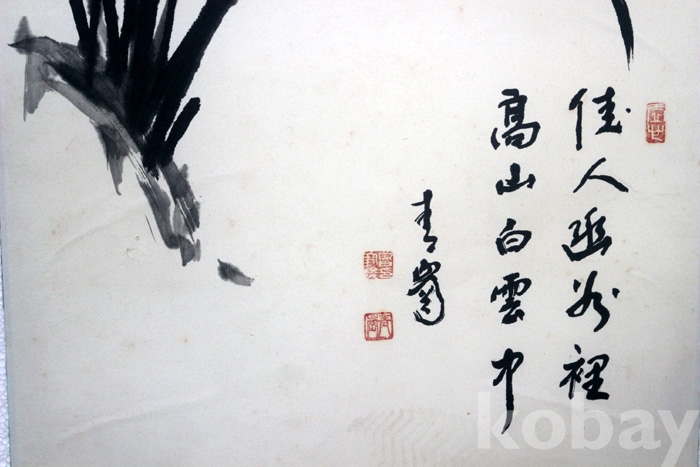 佳人幽谷裡
高山白雲中
青
kobay